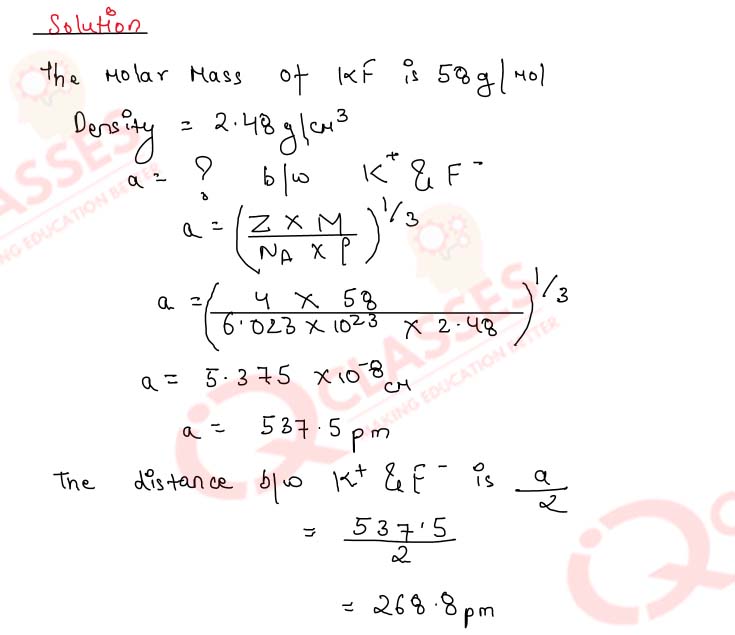 Solution
The Molar Mass of KF is 58g/mol
Density = 2.48g/cm³
a = ? b/w K⁺ & F⁻
a = (Z × M / N_A × ρ)^1/3
a = (4 × 58 / 6.023 × 10²³ × 2.48)^1/3
a = 5.375 × 10⁻⁸ cm
a = 537.5 pm
The distance b/w K⁺ & F⁻ is a/2
= 537.5/2
= 268.8 pm
iQ CLASSES
MAKING EDUCATION BETTER